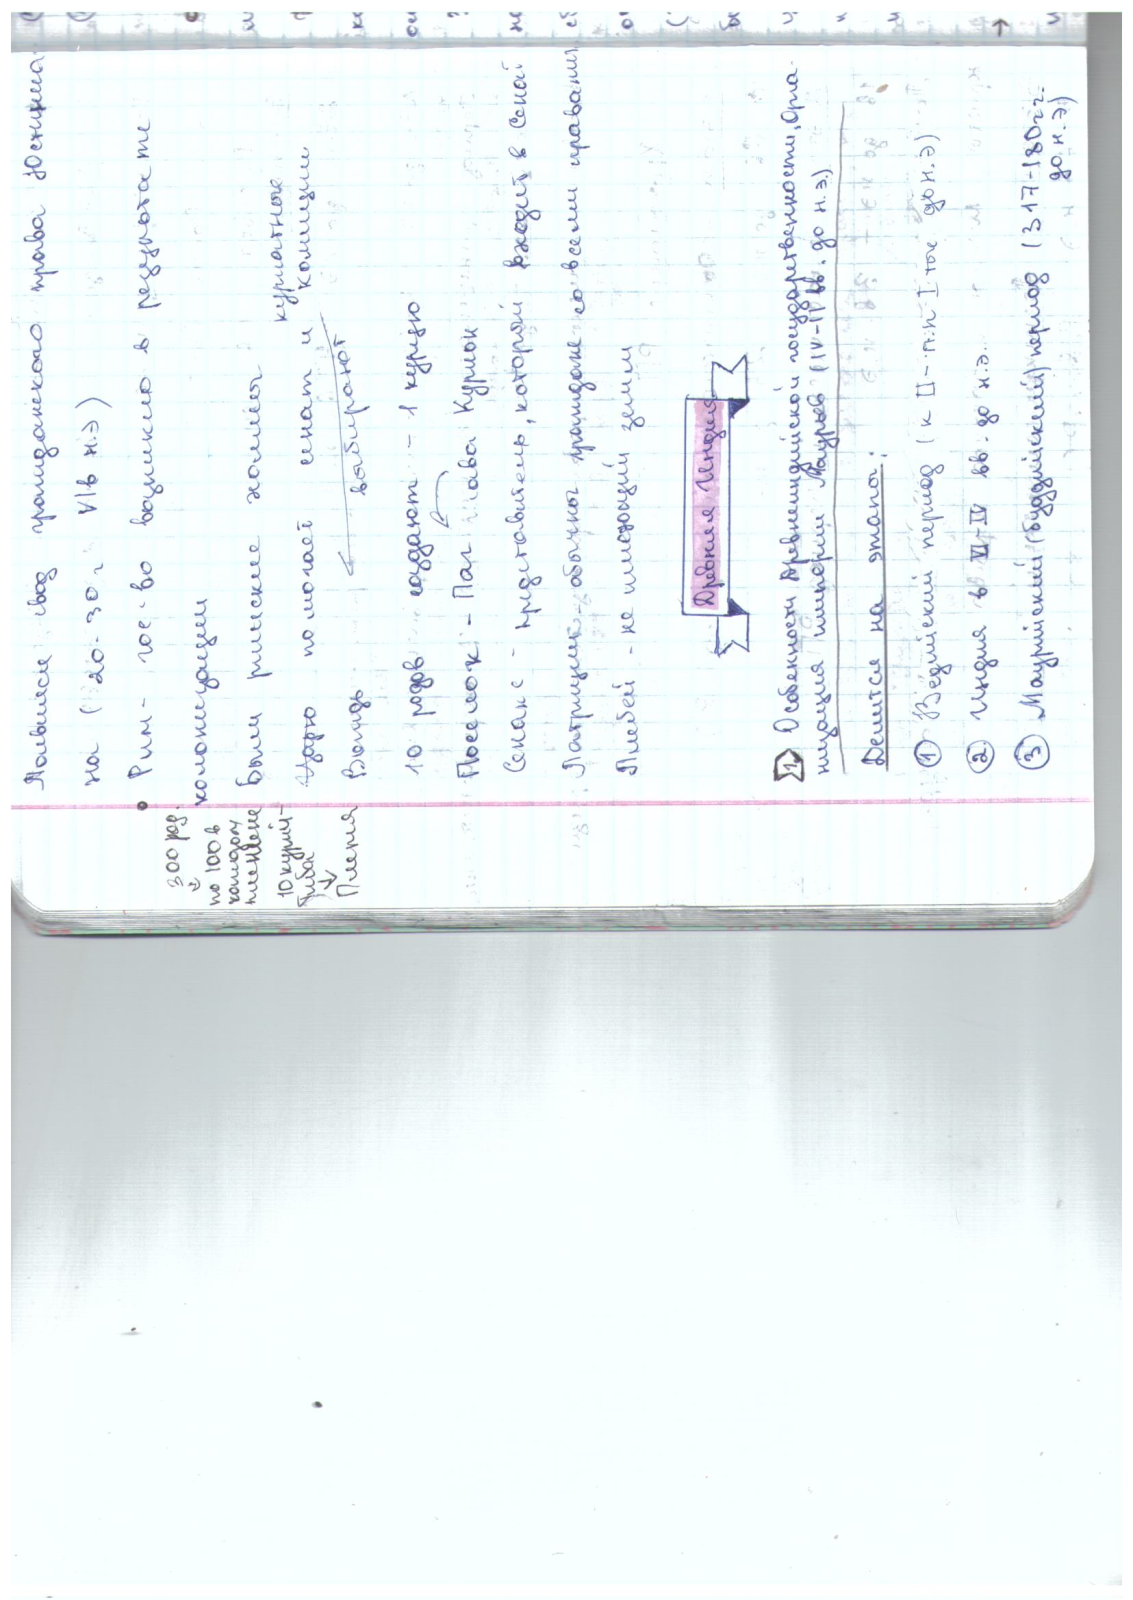 Появился свод гражданского права Юстиниа
на (20-30 г VIв н.э)
• Рим - гос-во возникло в результате
колонизации
Были римские холмы
куриатные
Царю помогает сенат и комиции
Вождь выбирают
10 родов создают - 1 курию
Поселок - Паг глава Курион
Сенат - представитель, который входит в Сенат
Патриций - обычный гражданин со всеми правами
Плебей - не имеющий земли
300 род
по 100 в
каждом
племене
10 курий-
Триба
↓
Древняя Индия
1 Особенности древнеиндийской государственности, Орга-
низация империи Маурьев (IV-II вв. до н.э.)
Делится на этапы:
① Ведийский период (к II - п.п I тыс до н.э)
② Индия в VI-IV вв. до н.э.
③ Маурийский (буддийский) период (317-180 гг.
до н.э)